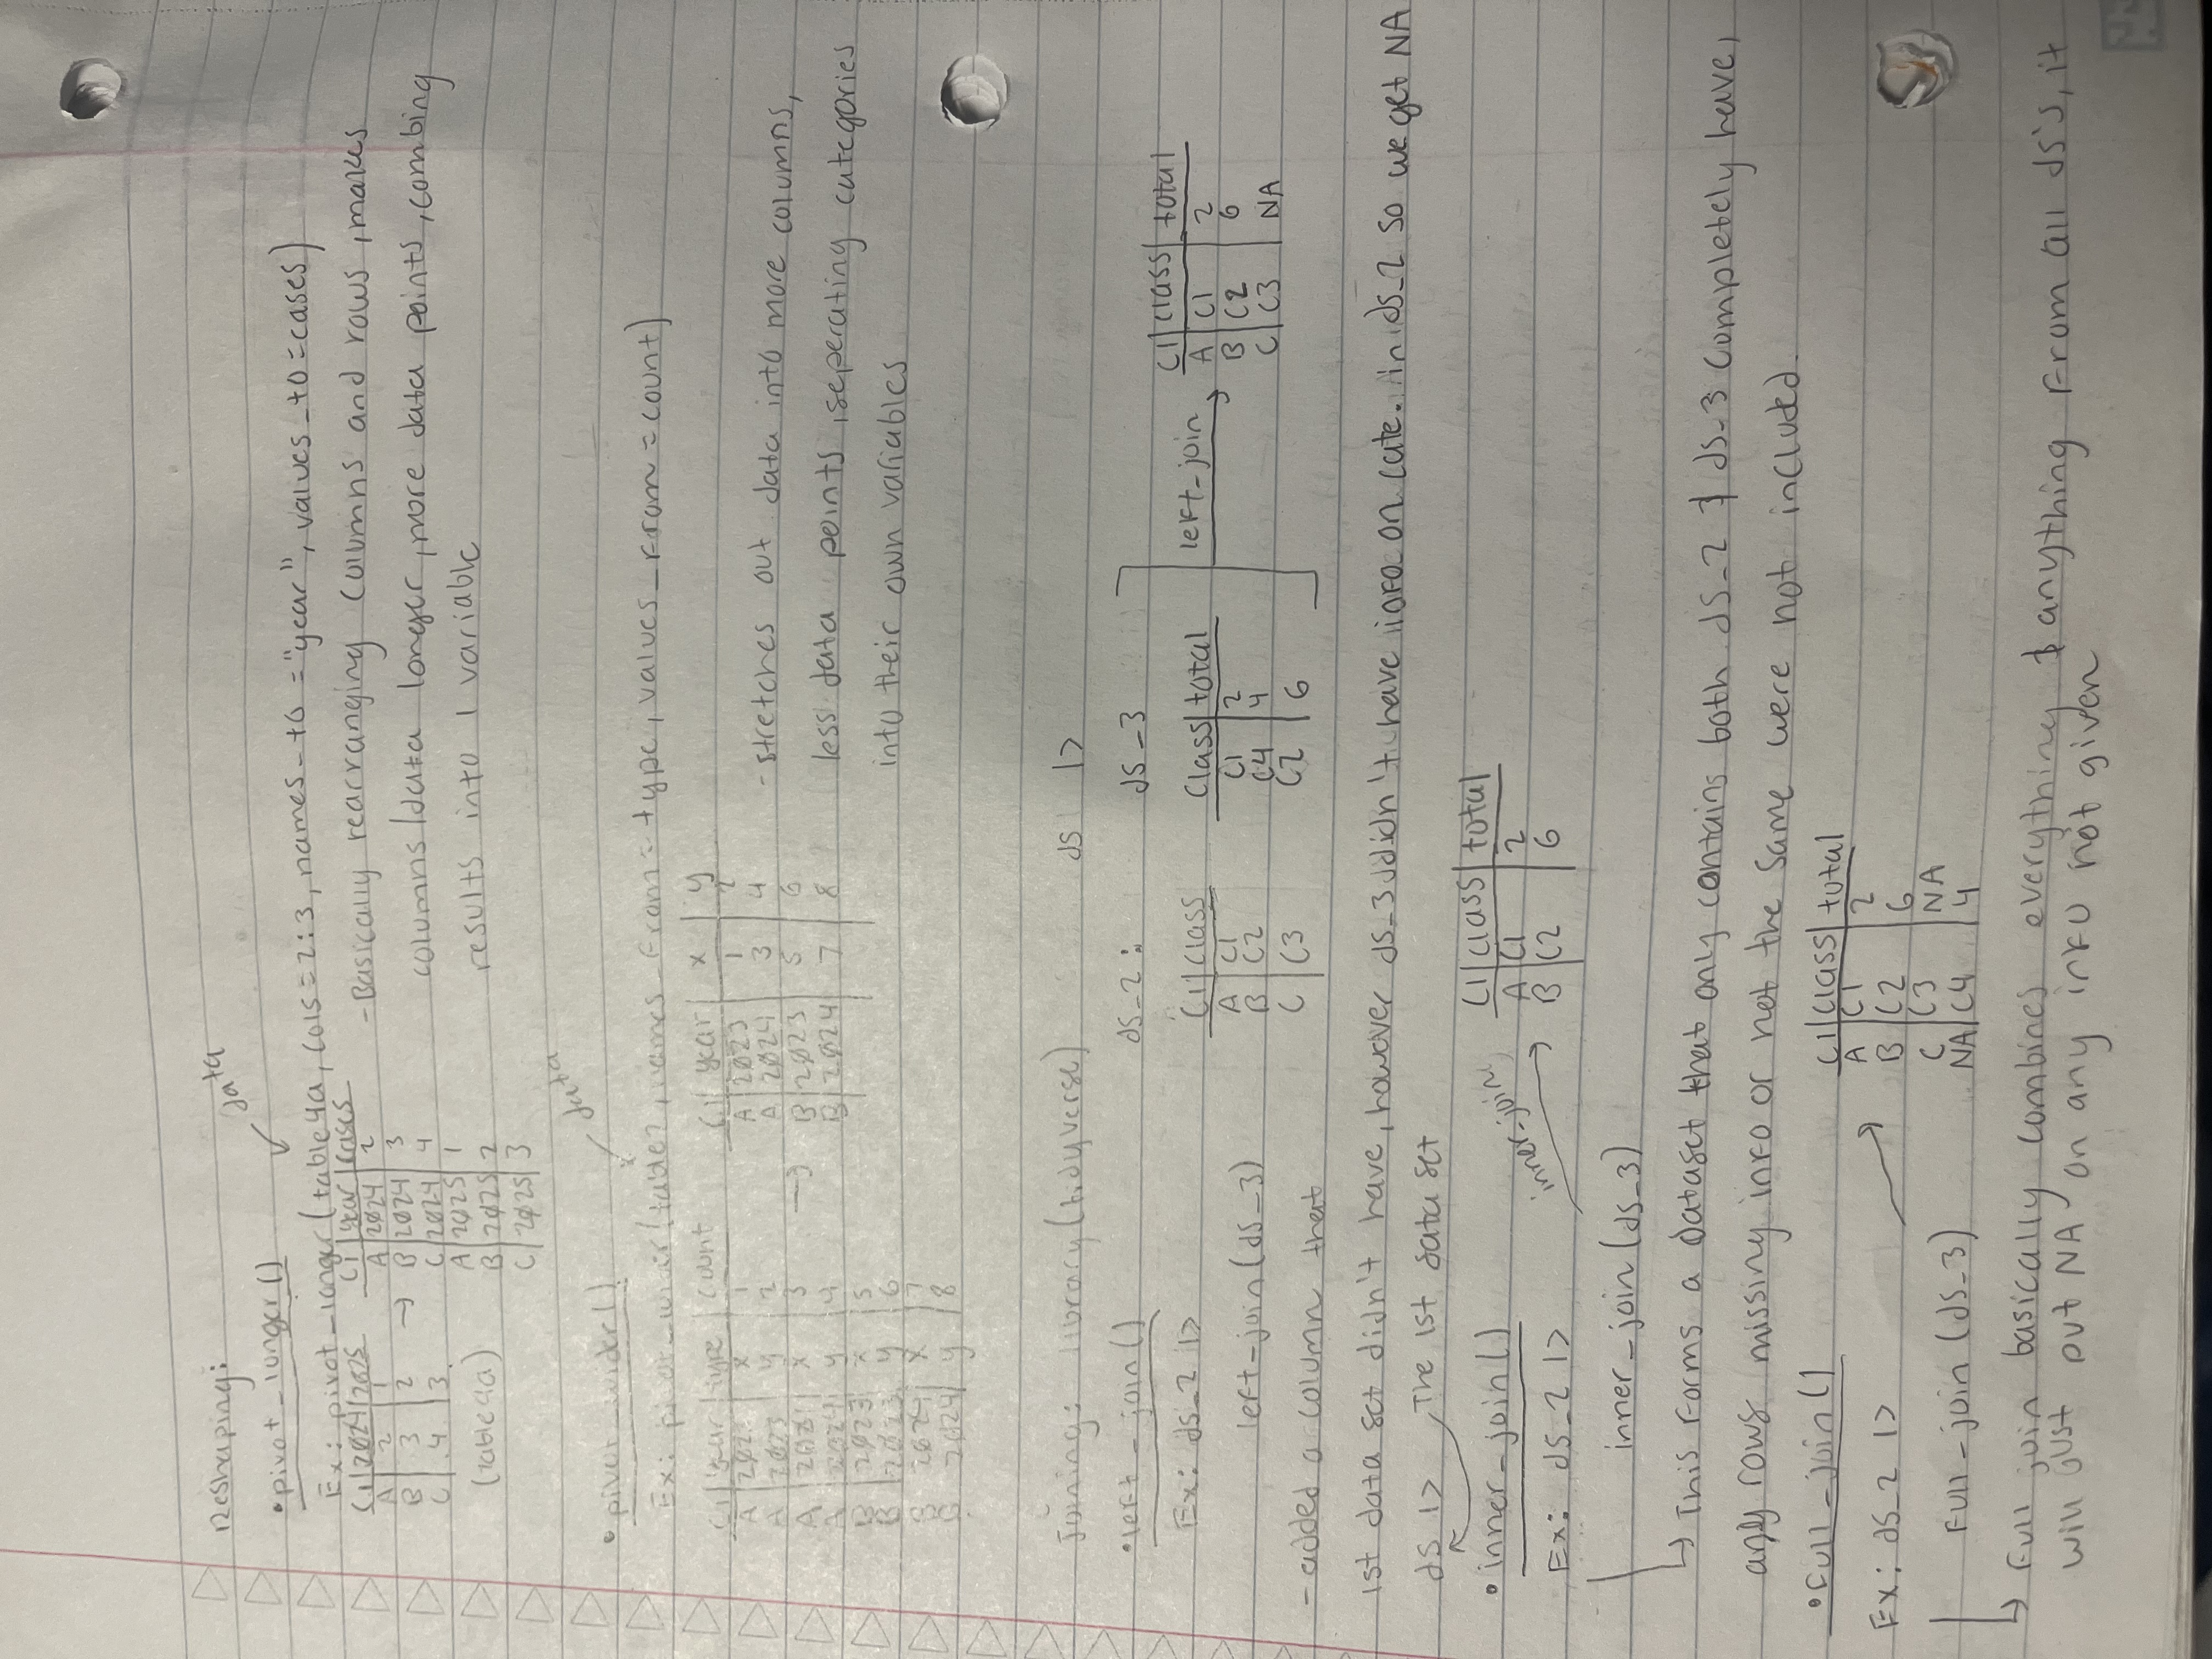 Reshaping:
data
• pivot_longer()
Ex: pivot_longer(table4a, cols=2:3, names_to="year", values_to=cases)
C1|2024|2025
A|2|1
B|3|2
C|4|3
(table4a)
→
C1|year|cases
A|2024|2
B|2024|3
C|2024|4
A|2025|1
B|2025|2
C|2025|3
-Basically rearranging columns and rows, makes
columns/data longer, more data points, combing
results into 1 variable
data
• pivot_wider()
Ex: pivot_wider(table2, names_from=type, values_from=count)
C1|year|type|count
A|2023|x|1
A|2023|y|2
A|x|3
A|2024|y|4
B|2023|x|5
B|2023|y|6
B|2024|x|7
B|2024|y|8
→
C1|year|x|y
A|2023|1|2
A|2024|3|4
B|2023|5|6
B|2024|7|8
-stretches out data into more columns,
less data points, seperating categories
into their own variables
Joining: library(tidyverse) ds |>
•left_join()
Ex: ds_2 |>
left_join(ds_3)
ds_2:
C1|class
A|C1
B|C2
C|C3
ds_3
Class|total
C1|2
C4|4
C2|6
left_join →
C1|class|total
A|C1|2
B|C2|6
C|C3|NA
-added a column that
1st data set didn't have, however ds_3 didn't have info on cate. in ds_2 so we get NA
ds |> The 1st data set
• inner_join()
Ex: ds_2 |>
inner_join(ds_3)
inner_join →
C1|class|total
A|C1|2
B|C2|6
↳ This forms a Dataset that only contains both ds_2 & ds_3 completely have,
any rows missing info or not the same were not included.
•Full_join()
Ex: ds_2 |>
Full_join(ds_3)
→
C1|Class|total
A|C1|2
B|C2|6
C|C3|NA
NA|C4|4
↳ Full join basically combines everything & anything from all ds's, it
will just put NA on any info not given